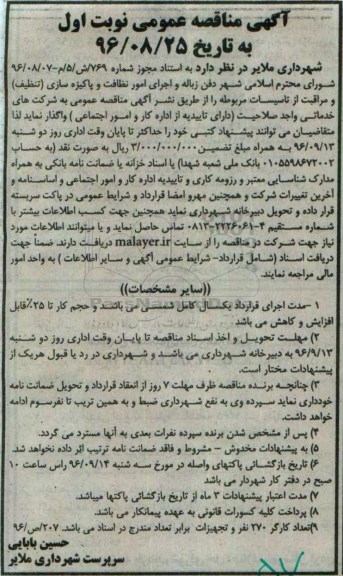 آگهی مناقصه عمومی نوبت اول
به تاریخ ۹۶/۰۸/۲۵
شهرداری ملایر در نظر دارد به استناد مجوز شماره ۷۶۹/ش/۵/م-۹۶/۰۸/۰۷
شورای محترم اسلامی شهر دفن زباله و اجرای امور نظافت و پاکیزه سازی (تنظیف)
و مراقبت از تاسیسات مربوطه را از طریق نشر آگهی مناقصه عمومی به شرکت های
خدماتی واجد صلاحیت (دارای تاییدیه از اداره کار و امور اجتماعی ) واگذار نماید لذا
متقاضیان می توانند پیشنهاد کتبی خود را حداکثر تا پایان وقت اداری روز دو شنبه
۹۶/۰۹/۱۳ به همراه مبلغ تضمین ۳/۰۰۰/۰۰۰/۰۰۰ ریال به صورت نقد (به حساب
۰۱۰۵۵۹۸۶۷۲۰۰۲ بانک ملی شعبه شهدا) یا اسناد خزانه یا ضمانت نامه بانکی به همراه
مدارک شناسایی معتبر و رزومه کاری و تاییدیه اداره کار و امور اجتماعی و اساسنامه و
آخرین تغییرات شرکت و همچنین مهرو امضا قرارداد و شرایط عمومی در پاکت سربسته
قرار داده و تحویل دبیرخانه شهرداری نماید همچنین جهت کسب اطلاعات بیشتر با
شماره مستقیم ۴-۰۸۱۳۲۲۲۶۰۶۱ تماس حاصل نماید و یا میتوانند اطلاعات مورد
نیاز جهت شرکت در مناقصه را از سایت malayer.ir دریافت دارند. ضمناً جهت
دریافت اسناد (شامل قرارداد- شرایط عمومی آگهی و سایر اطلاعات ) به واحد امور
مالی مراجعه نمایند.
((سایر مشخصات))
۱ -مدت اجرای قرارداد یکسال کامل شمسی می باشد و حجم کار تا ۲۵٪قابل
افزایش و کاهش می باشد
۲) مهلت تحویل و اخذ اسناد مناقصه تا پایان وقت اداری روز دو شنبه
۹۶/۹/۱۳ به دبیرخانه شهرداری می باشد و شهرداری در رد یا قبول هریک از
پیشنهادات مختار است.
۳) چنانچه برنده مناقصه ظرف مهلت ۷ روز از انعقاد قرارداد و تحویل ضمانت نامه
خودداری نماید سپرده وی به نفع شهرداری ضبط و به همین تریب تا نفرسوم ادامه
خواهد داشت.
۴) پس از مشخص شدن برنده سپرده نفرات بعدی به آنها مسترد می گردد.
۵) به پیشنهادات مخدوش – مشروط و فاقد ضمانت نامه ترتیب اثر داده نخواهد شد.
۶) تاریخ بازگشائی پاکتهای واصله در مورخ سه شنبه ۹۶/۰۹/۱۴ راس ساعت ۱۰
صبح در دفتر کار شهردار می باشد
۷) مدت اعتبار پیشنهادات ۳ ماه از تاریخ بازگشائی پاکتها میباشد.
۸) پرداخت کلیه کسورات قانونی به عهده پیمانکار می باشد.
۹)تعداد کارگر ۲۷۰ نفر و تجهیزات برابر تعداد مندرج در اسناد می باشد. ۲۰۷/ص/۹۶
حسین بابایی
سرپرست شهرداری ملایر